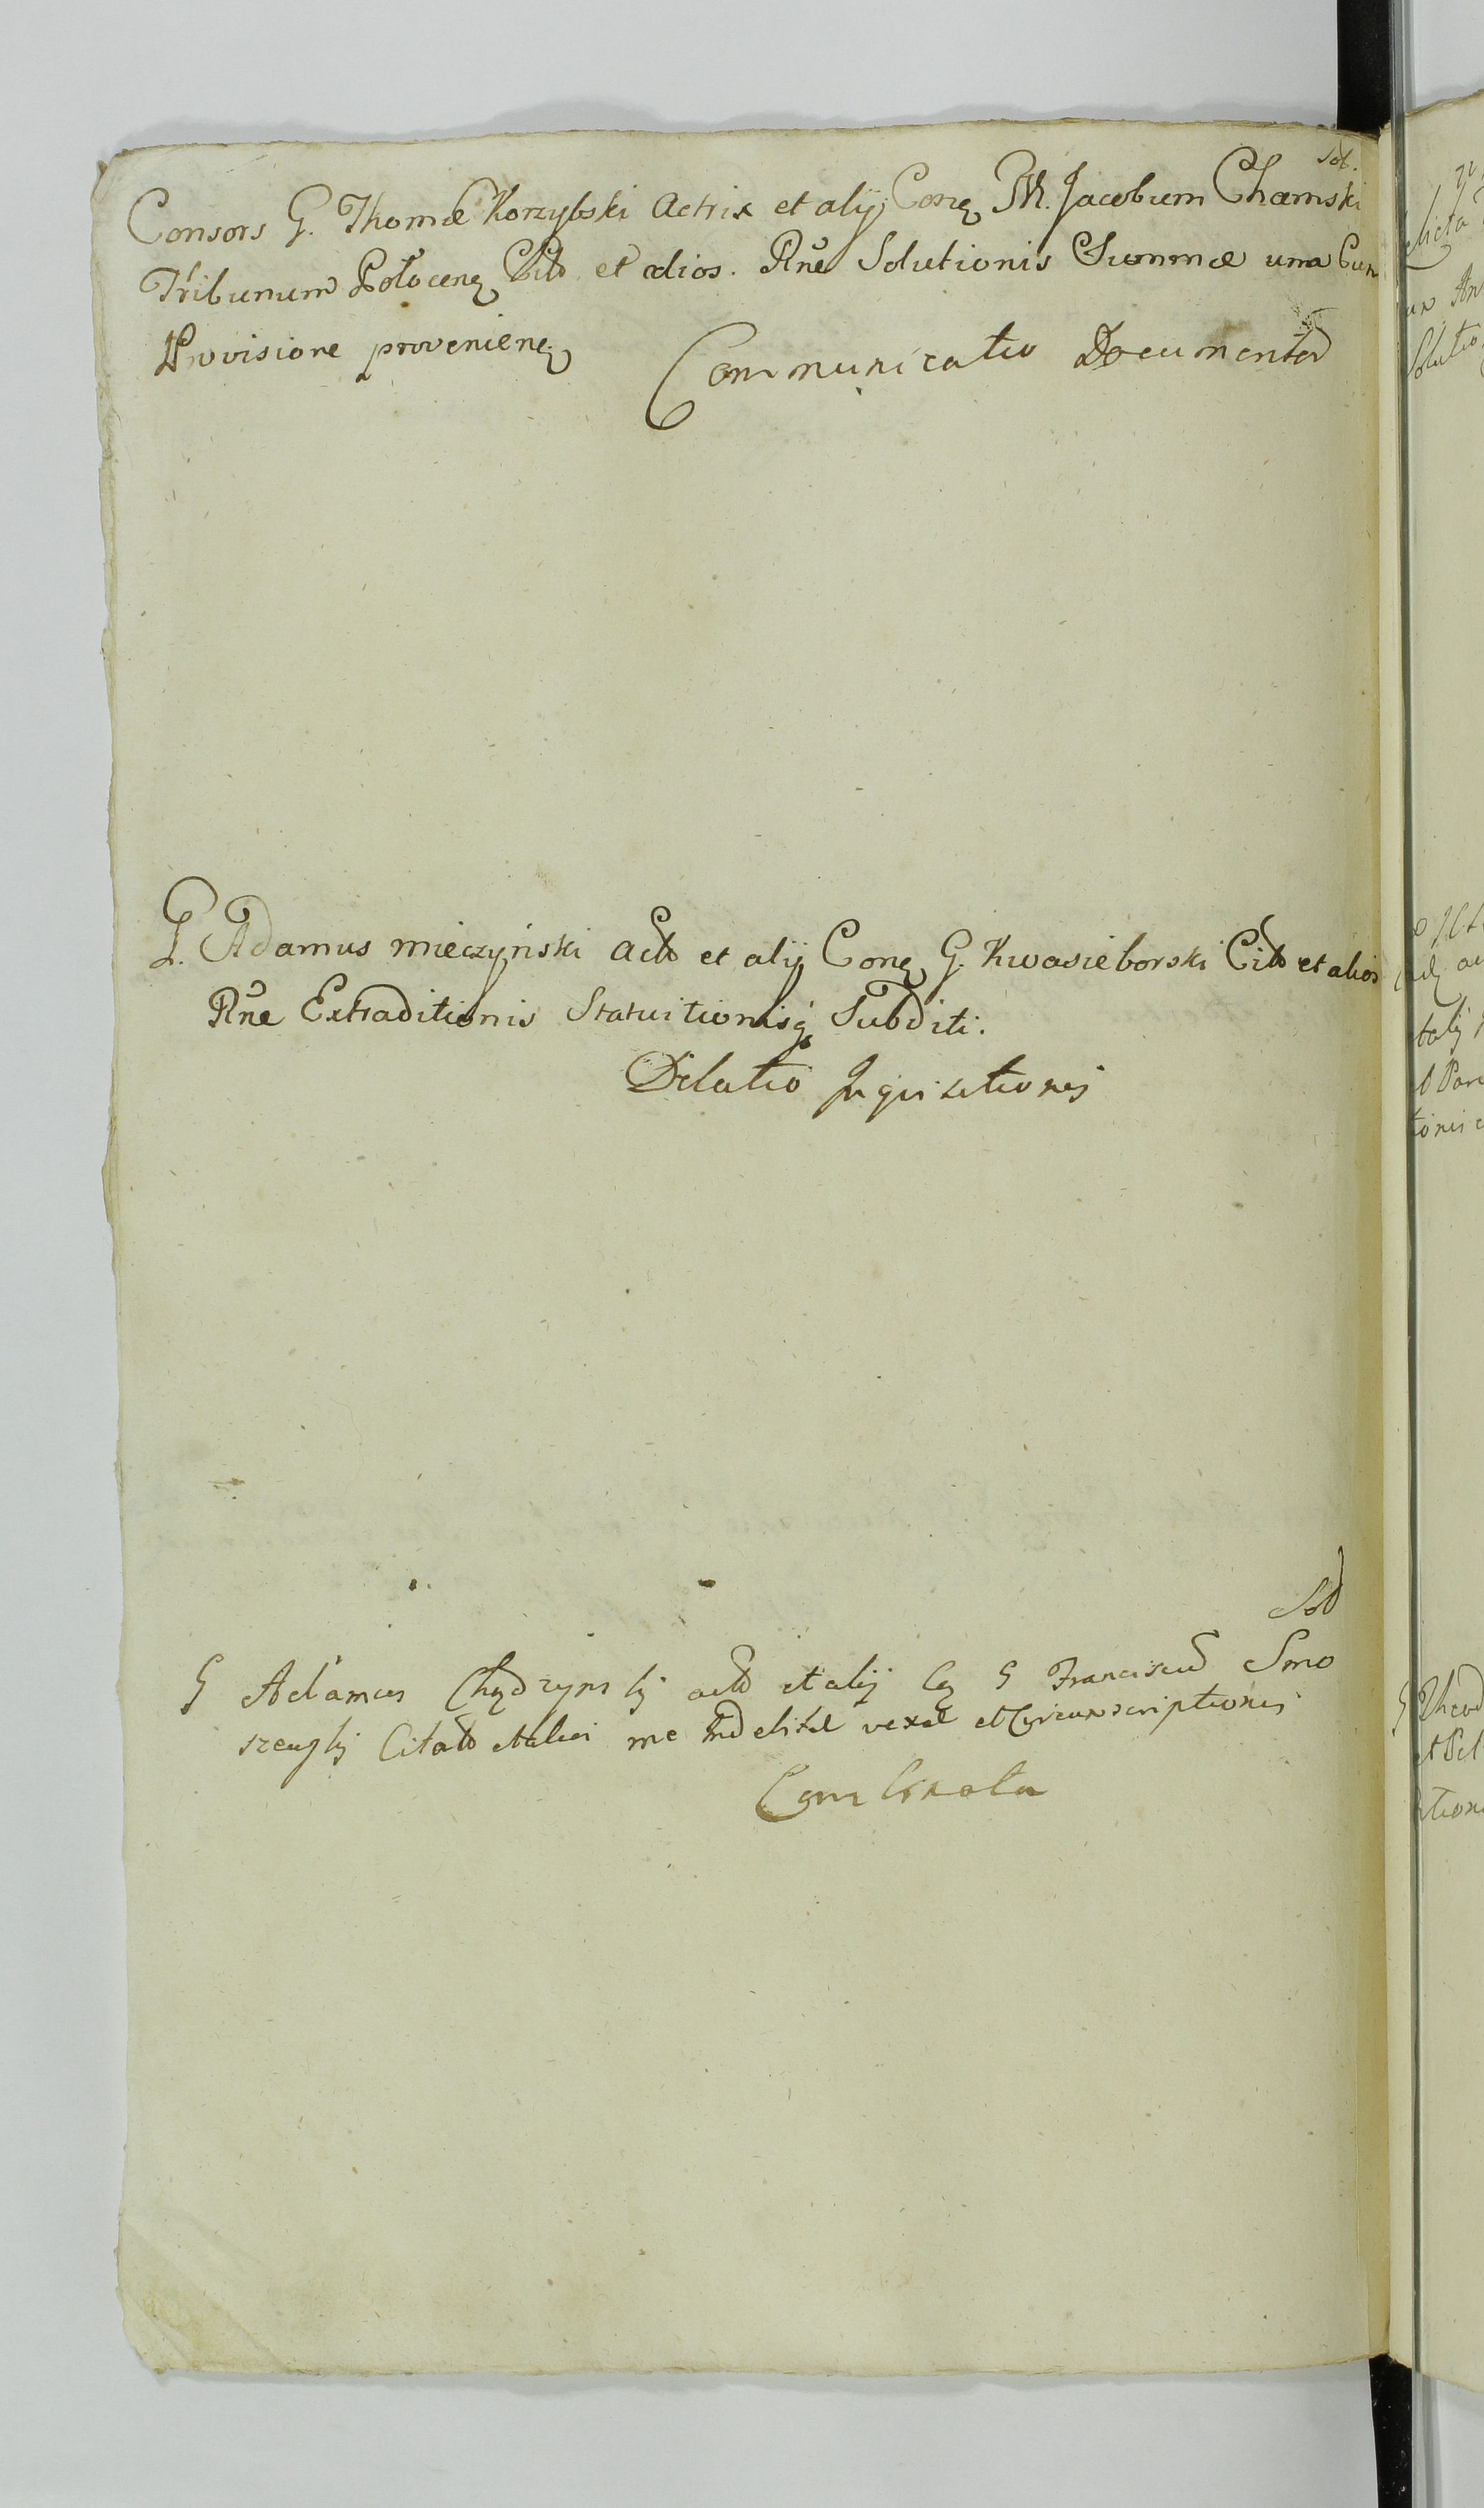 Sol.
Consors G. Thomæ Korzybski Actrix et alij Conq M. Jacobum Chamski
Tribunum Połocenq Citd et alios. Rne Solutionis Summæ una Cum
Provisione provenienq
Communicatio Documentor
G. Adamus Mieczyński Actd et alij Conq G. Kwasieborski Citd et alios
Rne Extraditionis Statuitionisq Subditi.
Dilatio Inquisitionis
Sol
G Adamus Chądzyński actd et alij Cq G Franciscum Smo
szewski Citatd et alios rne vexæ et Circumscriptionis
Combinata